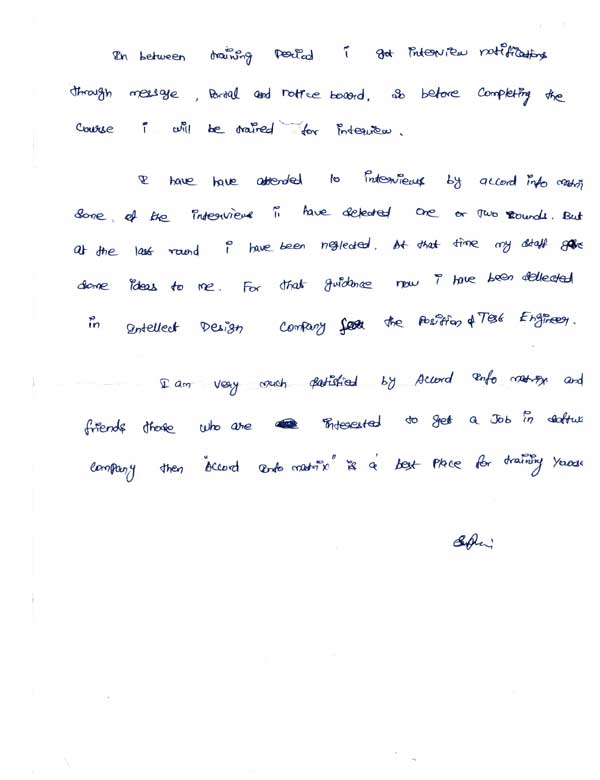 In between training period i got interview notifications
through message, Portal and notice board, so before completing the
course i will be trained for interview.
I have have attended 10 interviews by accord info matri
some of the interviews i have selected one or two rounds. But
at the last round i have been neglected. At that time my staff gave
some ideas to me. For that guidance now i have been sellected
in intellect Design company for the position of Test Engineer.
I am very much satisfied by Accord info matrix and
friends those who are interested to get a Job in softwa
company then "Accord info matrix" is a best place for training